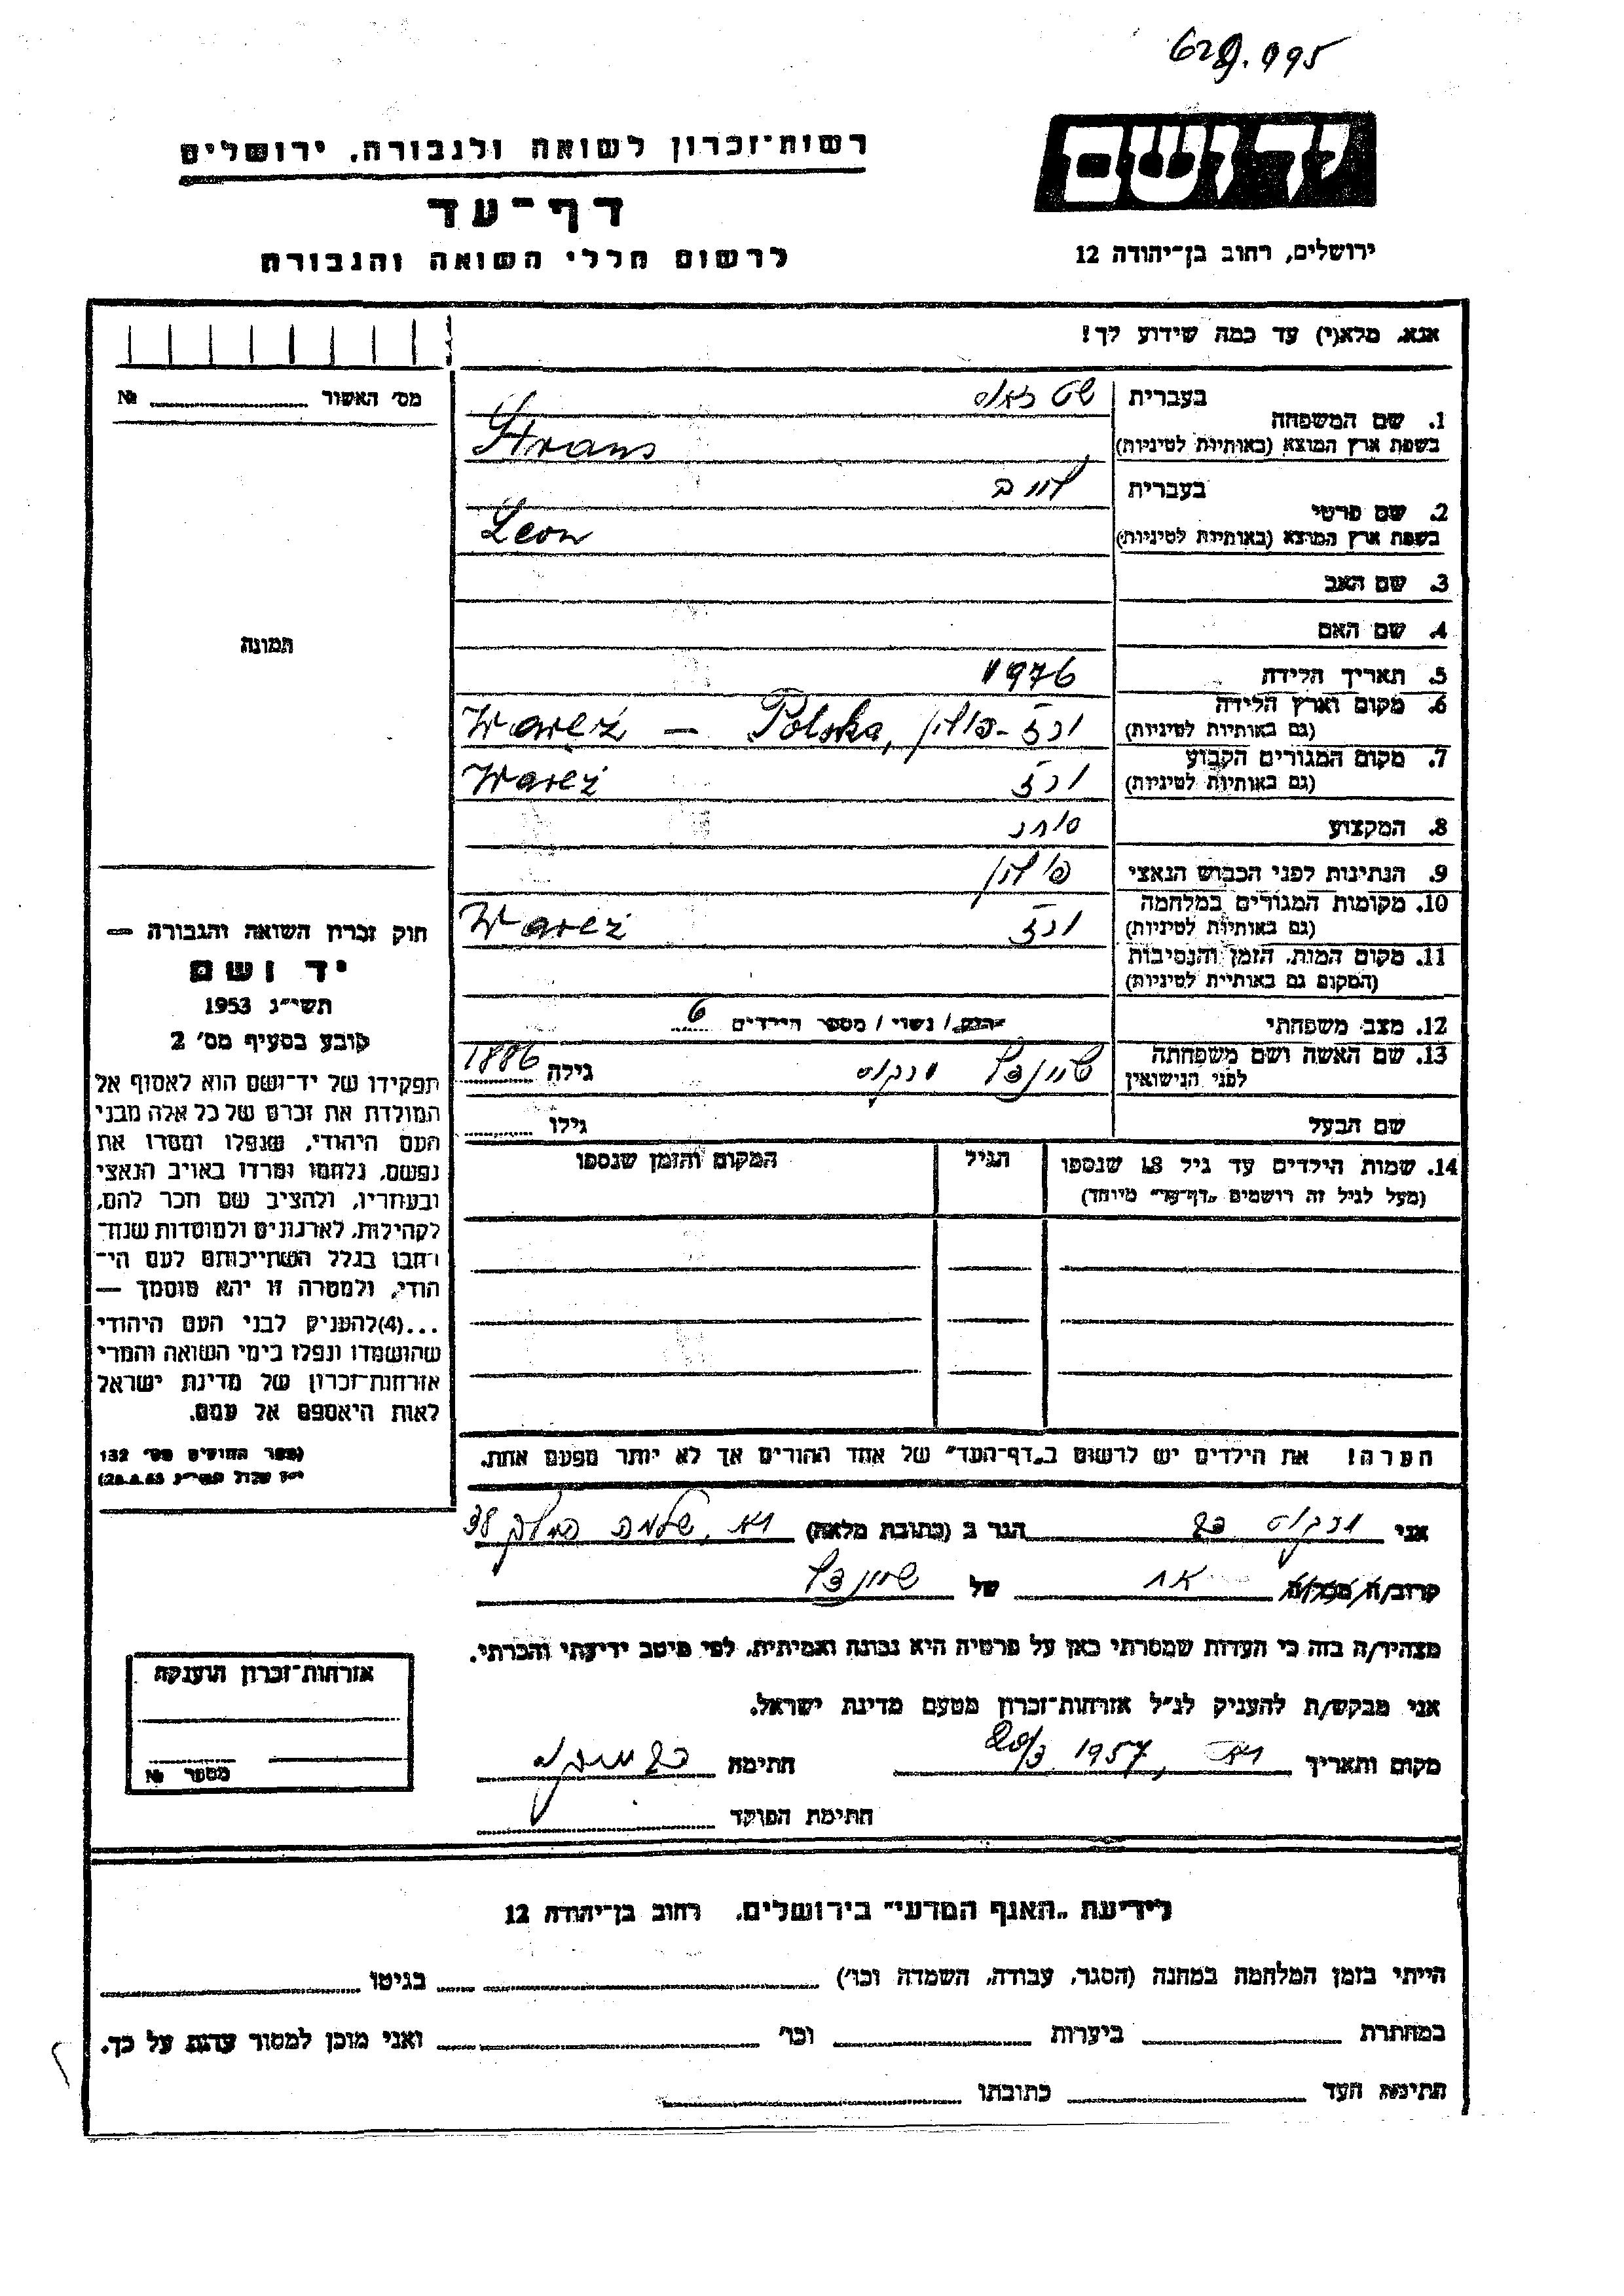 629.995
יד ושם
ירושלים, רחוב בן־יהודה 12
רשות־זכרון לשואה ולגבורה, ירושלים
דף־עד
לרשום חללי השואה והגבורה
אנא, מלא(י) עד כמה שידוע לך!
מס׳ האשור № 
1. שם המשפחה
בעברית
בשפת ארץ המוצא (באותיות לטיניות) Strans
2. שם פרטי
בעברית
בשפת ארץ המוצא (באותיות לטיניות) Leon
3. שם האב
4. שם האם
תמונה
5. תאריך הלידה 1976
6. מקום וארץ הלידה (גם באותיות לטיניות) ורנז - פולין, Waręż – Polska
7. מקום המגורים הקבוע (גם באותיות לטיניות) ורנז Waręż
8. המקצוע סוחר
9. הנתינות לפני הכבוש הנאצי פולין
10. מקומות המגורים במלחמה (גם באותיות לטיניות) ורנז Waręż
11. מקום המות, הזמן והנסיבות (המקום גם באותיות לטיניות)
12. מצב משפחתי רווק / נשוי / מספר הילדים 6
13. שם האשה ושם משפחתה לפני הנישואין שיינדל גילה 1886
שם הבעל גילו
14. שמות הילדים עד גיל 18 שנספו (מעל לגיל זה רושמים „דף־עד״ מיוחד)
הגיל
המקום והזמן שנספו
הערה! את הילדים יש לרשום ב„דף־העד״ של אחד ההורים אך לא יותר מפעם אחת.
חוק זכרון השואה והגבורה —
יד ושם
תשי״ג 1953
קובע בסעיף מס׳ 2
תפקידו של יד־ושם הוא לאסוף אל
המולדת את זכרם של כל אלה מבני
העם היהודי, שנפלו ומסרו את
נפשם, נלחמו ומרדו באויב הנאצי
ובעוזריו, ולהציב שם וזכר להם,
לקהילות, לארגונים ולמוסדות שנח־
רבו בגלל השתייכותם לעם הי־
הודי, ולמטרה זו יהא מוסמך —
...(4)להעניק לבני העם היהודי
שהושמדו ונפלו בימי השואה והמרי
אזרחות־זכרון של מדינת ישראל
לאות היאספם אל עמם.
(ספר החוקים מס׳ 132
אני הגר ב (כתובת מלאה) שלמה המלך 38
קרוב/ה מכר/ה אח של שיינדל
מצהיר/ה בזה כי העדות שמסרתי כאן על פרטיה היא נכונה ואמיתית, לפי מיטב ידיעתי והכרתי.
אני מבקש/ת להעניק לנ״ל אזרחות־זכרון מטעם מדינת ישראל.
מקום ותאריך 1957 חתימה
חתימת הפוקד
אזרחות־זכרון הוענקה
מספר №
לידיעת „האגף המדעי״ בירושלים, רחוב בן־יהודה 12
הייתי בזמן המלחמה במחנה (הסגר, עבודה, השמדה וכו׳) בגיטו
במחתרת ביערות וכו׳ ואני מוכן למסור עדות על כך.
חתימת העד כתובתו